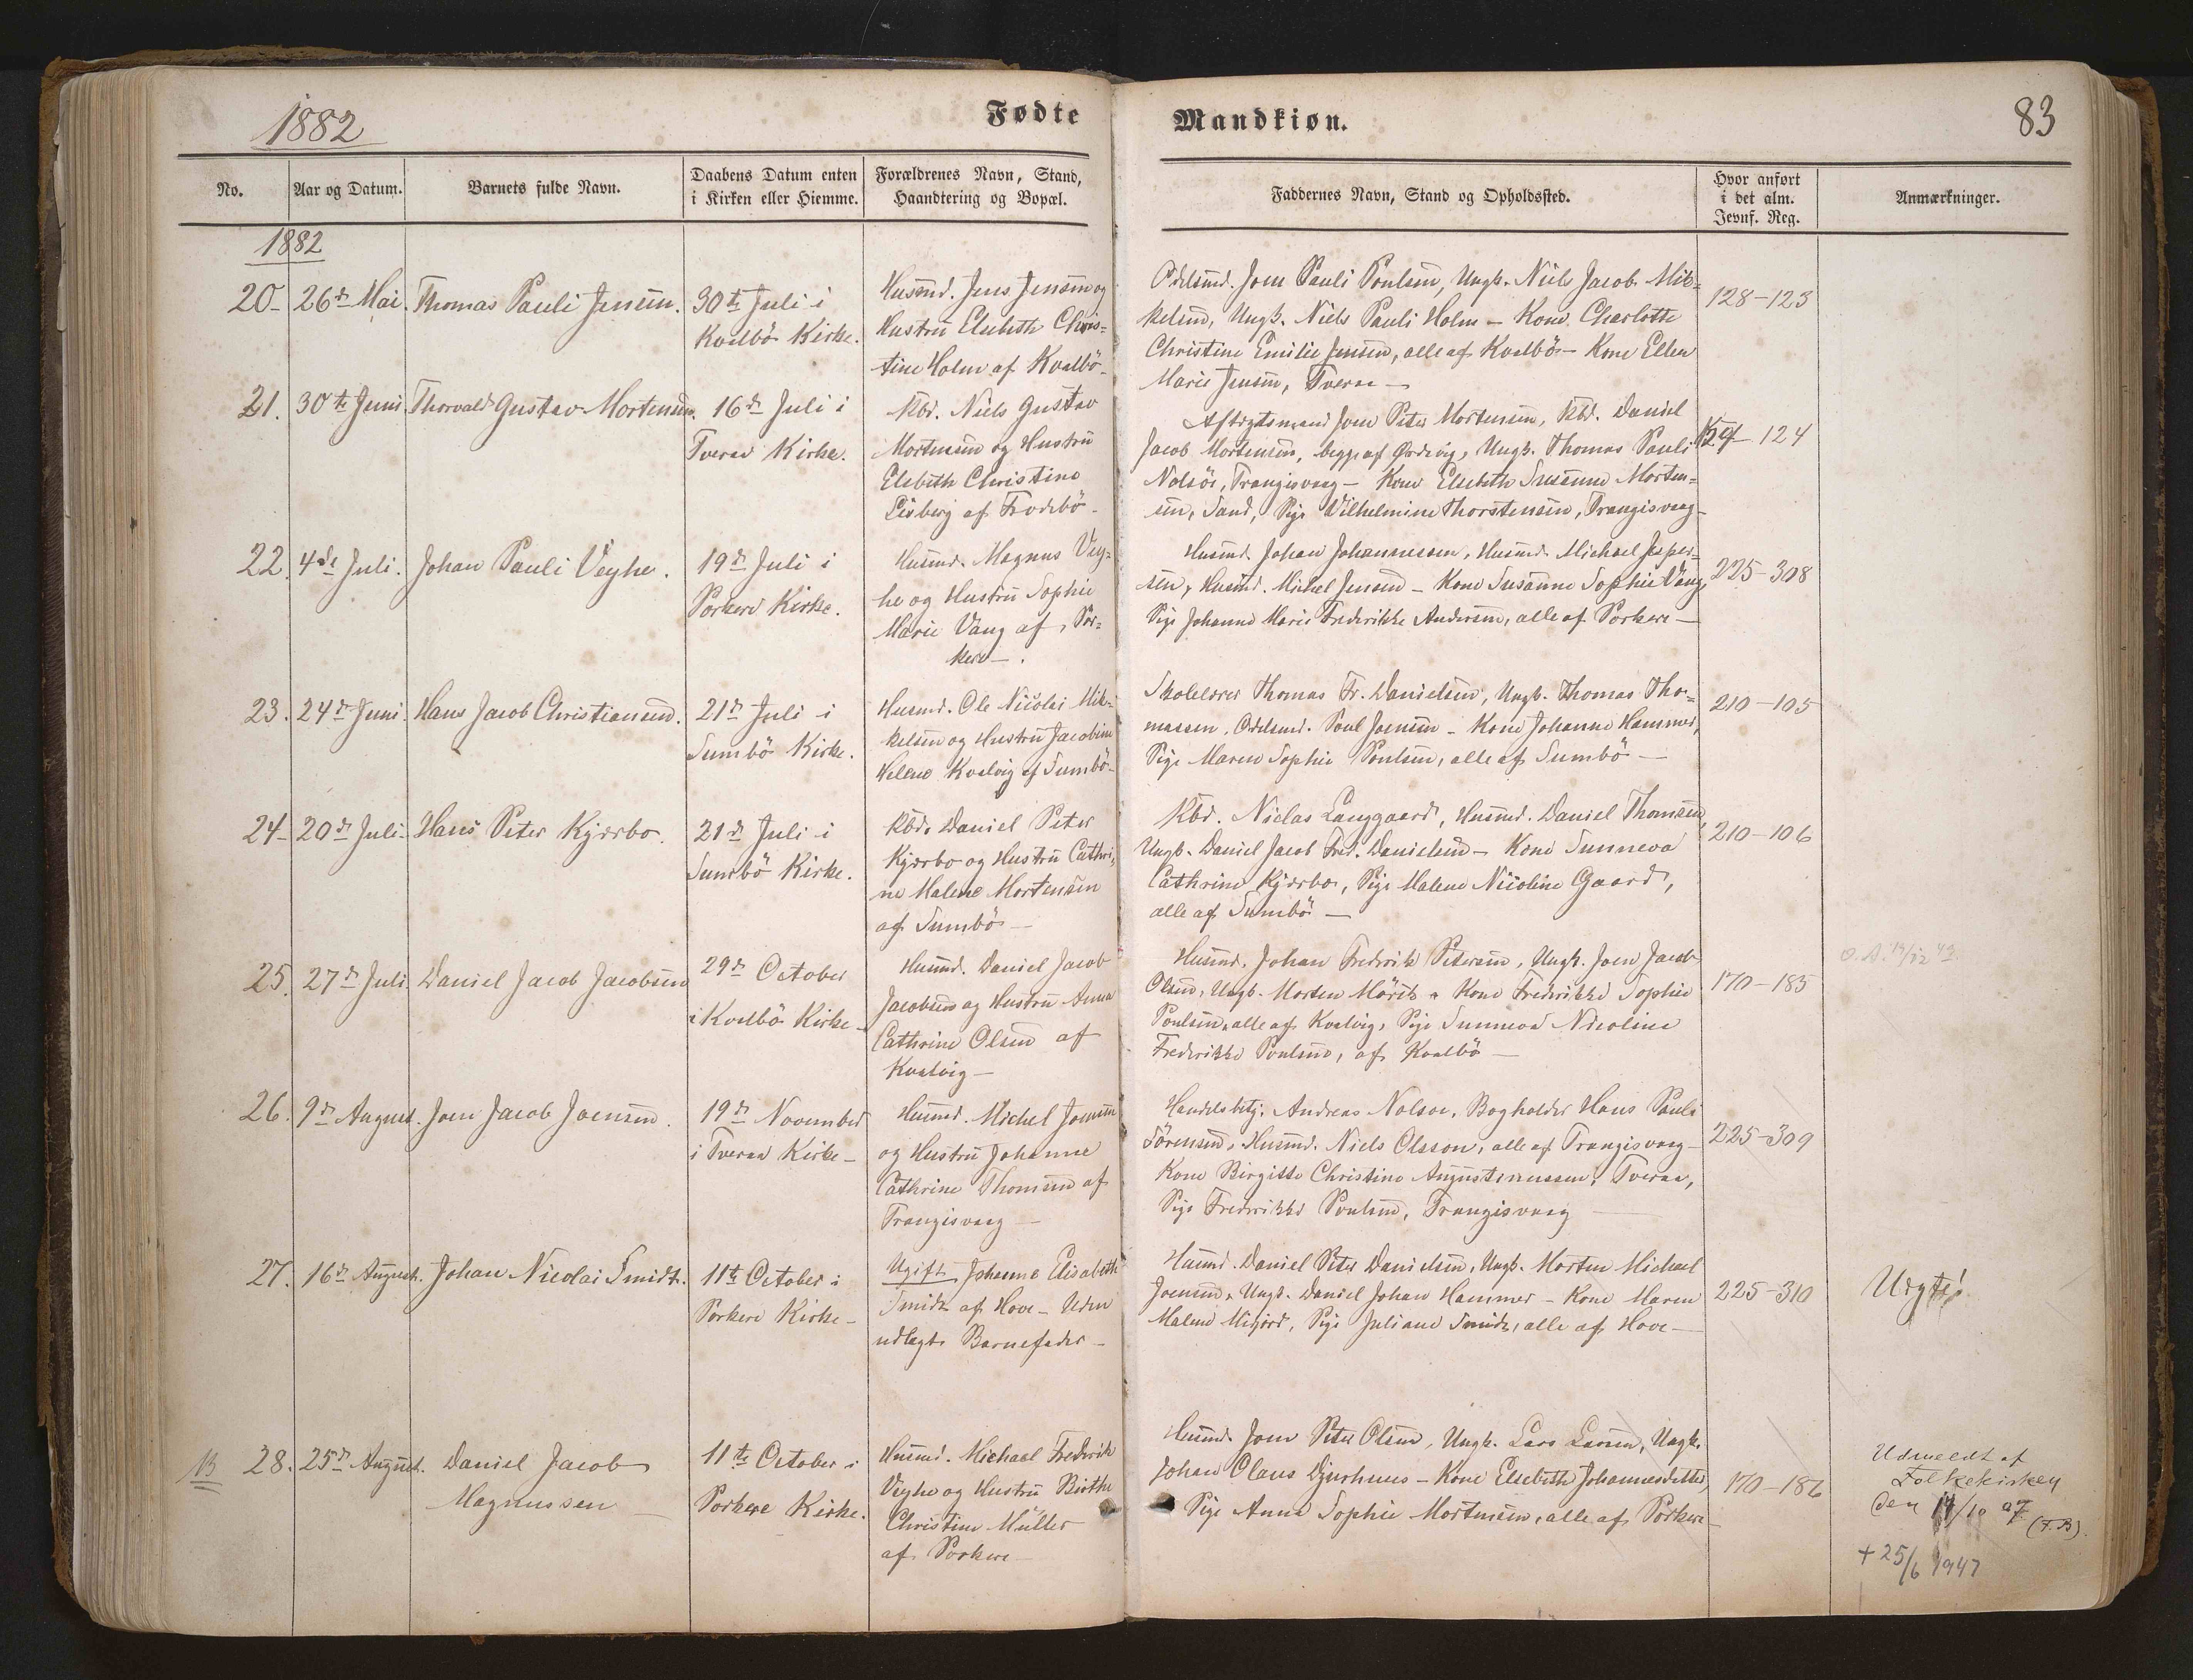 1882
Fødte
Mandkiøn.
83
No.
Aar og Datum.
Barnets fulde Navn.
Daabens Datum enten
i Kirken eller Hiemme.
Forældrenes Navn, Stand,
Haandtering og Bopæl.
Faddernes Navn, Stand og Opholdssted.
Hvor anført
i det alm.
Jevnf. Reg.
Anmærkninger.
1882
20-
26de Mai.
Thomas Pauli Jensen.
30te Juli i
Kvalbö Kirke.
Husmd. Jens Jensen og
Hustru Elsebeth Chris=
tine Holm af Kvalbö-
Odelsmd. Joen Pauli Poulsen, Ungk. Niels Jacob Mik=
kelsen, Ungk. Niels Pauli Holm - Kone Charlotte
Christine Emilie Jensen, alle af Kvalbö - Kone Ellen
Marie Jensen, Tveraa -
128-123
21.
30te Juni
Thorvald Gustav Mortensen.
16de Juli i
Tveraa Kirke.
Kbd. Niels Gustav
Mortensen og Hustru
Elsbeth Christine
Lisberg af Frodebö-
Aftrgtsmand Joen Peter Mortensen, Kbd. Daniel
Jacob Mortensen, begge af Ørdevig, Ungk. Thomas Pauli
Nolsöe, Trangisvaag - Kone Elsebeth Susanne Morten=
sen, Sand, Pige Wilhelmine Thorstensen, Trangisvaag-
124
22.
4de Juli.
Johan Pauli Veyhe.
19de Juli i
Porkere Kirke.
Husmd. Magnus Vey=
he og Hustru Sophie
Marie Vang af Por=
kere-.
Husmd. Johan Johannessen, Husmd. Michael Jesper=
sen, Husmd. Michel Jensen - Kone Susanne Sophie Vang,
Pige Johanne Marie Frederikke Andersen, alle af Porkere -
225-308
23.
24de Juni.
Hans Jacob Christiansen.
21de Juli i
Sumbö Kirke.
Husmd. Ole Nicolai Mik-
kelsen og Hustru Jacobine
Helene Kvalvig af Sumbö-
Skolelærer Thomas Fr. Danielsen, Ungk. Thomas Tho=
massen, Odelsmd. Poul Joensen - Kone Johanne Hammer,
Pige Maren Sophie Poulsen, alle af Sumbö -
210-105
24-
20de Juli-
Hans Peter Kjærbo.
21de Juli i
Sumbö Kirke.
Kbd. Daniel Peter
Kjærbo og Hustru Cathri=
ne Malene Mortensen
af Sumbö -
Kbd. Niclas Langgaard, Husmd. Daniel Thomsen,
Ungk. Daniel Jacob Fred. Danielsen - Kone Sunneva
Cathrine Kjærbo, Pige Malene Nicoline Gaard,
alle af Sumbö -
210-106
25.
27de Juli
Daniel Jacob Jacobsen
29de October
i Kvalbö Kirke-
Husmd. Daniel Jacob
Jacobsen og Hustru Anna
Cathrine Olsen af
Kvalvig -
Husmd. Johan Frederik Petersen, Ungk. Joen Jacob
Olsen, Ungk. Morten Mörck - Kone Frederikke Sophie
Poulsen, alle af Kvalvig, Pige Sunneva Nicoline
Frederikke Poulsen, af Kvalbö -
170-185
26.
9de August.
Joen Jacob Joensen.
19de November
i Tveraa Kirke -
Husmd. Michel Joensen
og Hustru Johanne
Cathrine Thomsen af
Trangisvaag -
Handelsbetj. Andreas Nolsoe, Bogholder Hans Pauli
Sörensen, Husmd. Niels Olsson, alle af Trangisvaag -
Kone Birgitte Christine Augustinussen, Tveraa,
Pige Frederikke Poulsen, Trangisvaag -
225-309
27.
16de August.
Johan Nicolai Smidt.
11te October i
Porkere Kirke -
Ugift Johanne Elisabeth
Smidt af Hove - Uden
udlagt Barnefader -
Husmd. Daniel Peter Danielsen, Ungk. Morten Michael
Joensen, Ungk. Daniel Johan Hammer - Kone Maren
Malene Mifjord, Pige Juliane Smidt, alle af Hove -
225-310
28.
25de August.
Daniel Jacob
Magnussen
11te October i
Porkere Kirke.
Husmd. Michael Frederik
Veyhe og Hustru Birthe
Christine Müller
af Porkere -
Husmd. Joen Peter Olsen, Ungk. Lars Larsen, Ungk.
Johan Claus Djurhuus - Kone Elsebeth Johannesdatter,
Pige Anna Sophie Mortensen, alle af Porkere -
170-186
Udmeldt af
Folkekirken
den 14/10 07 (F.B).
+ 25/6 1947